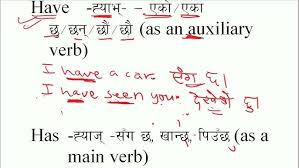 Have -ह्याभ्- – एको/एका
छ/छन्/छौ/छौ (as an auxiliary verb)
I have a car. सँग छ।
I have seen you. देखेको छु
Has -ह्याज् -सँग छ, खान्छ, पिउँछ (as a main verb)